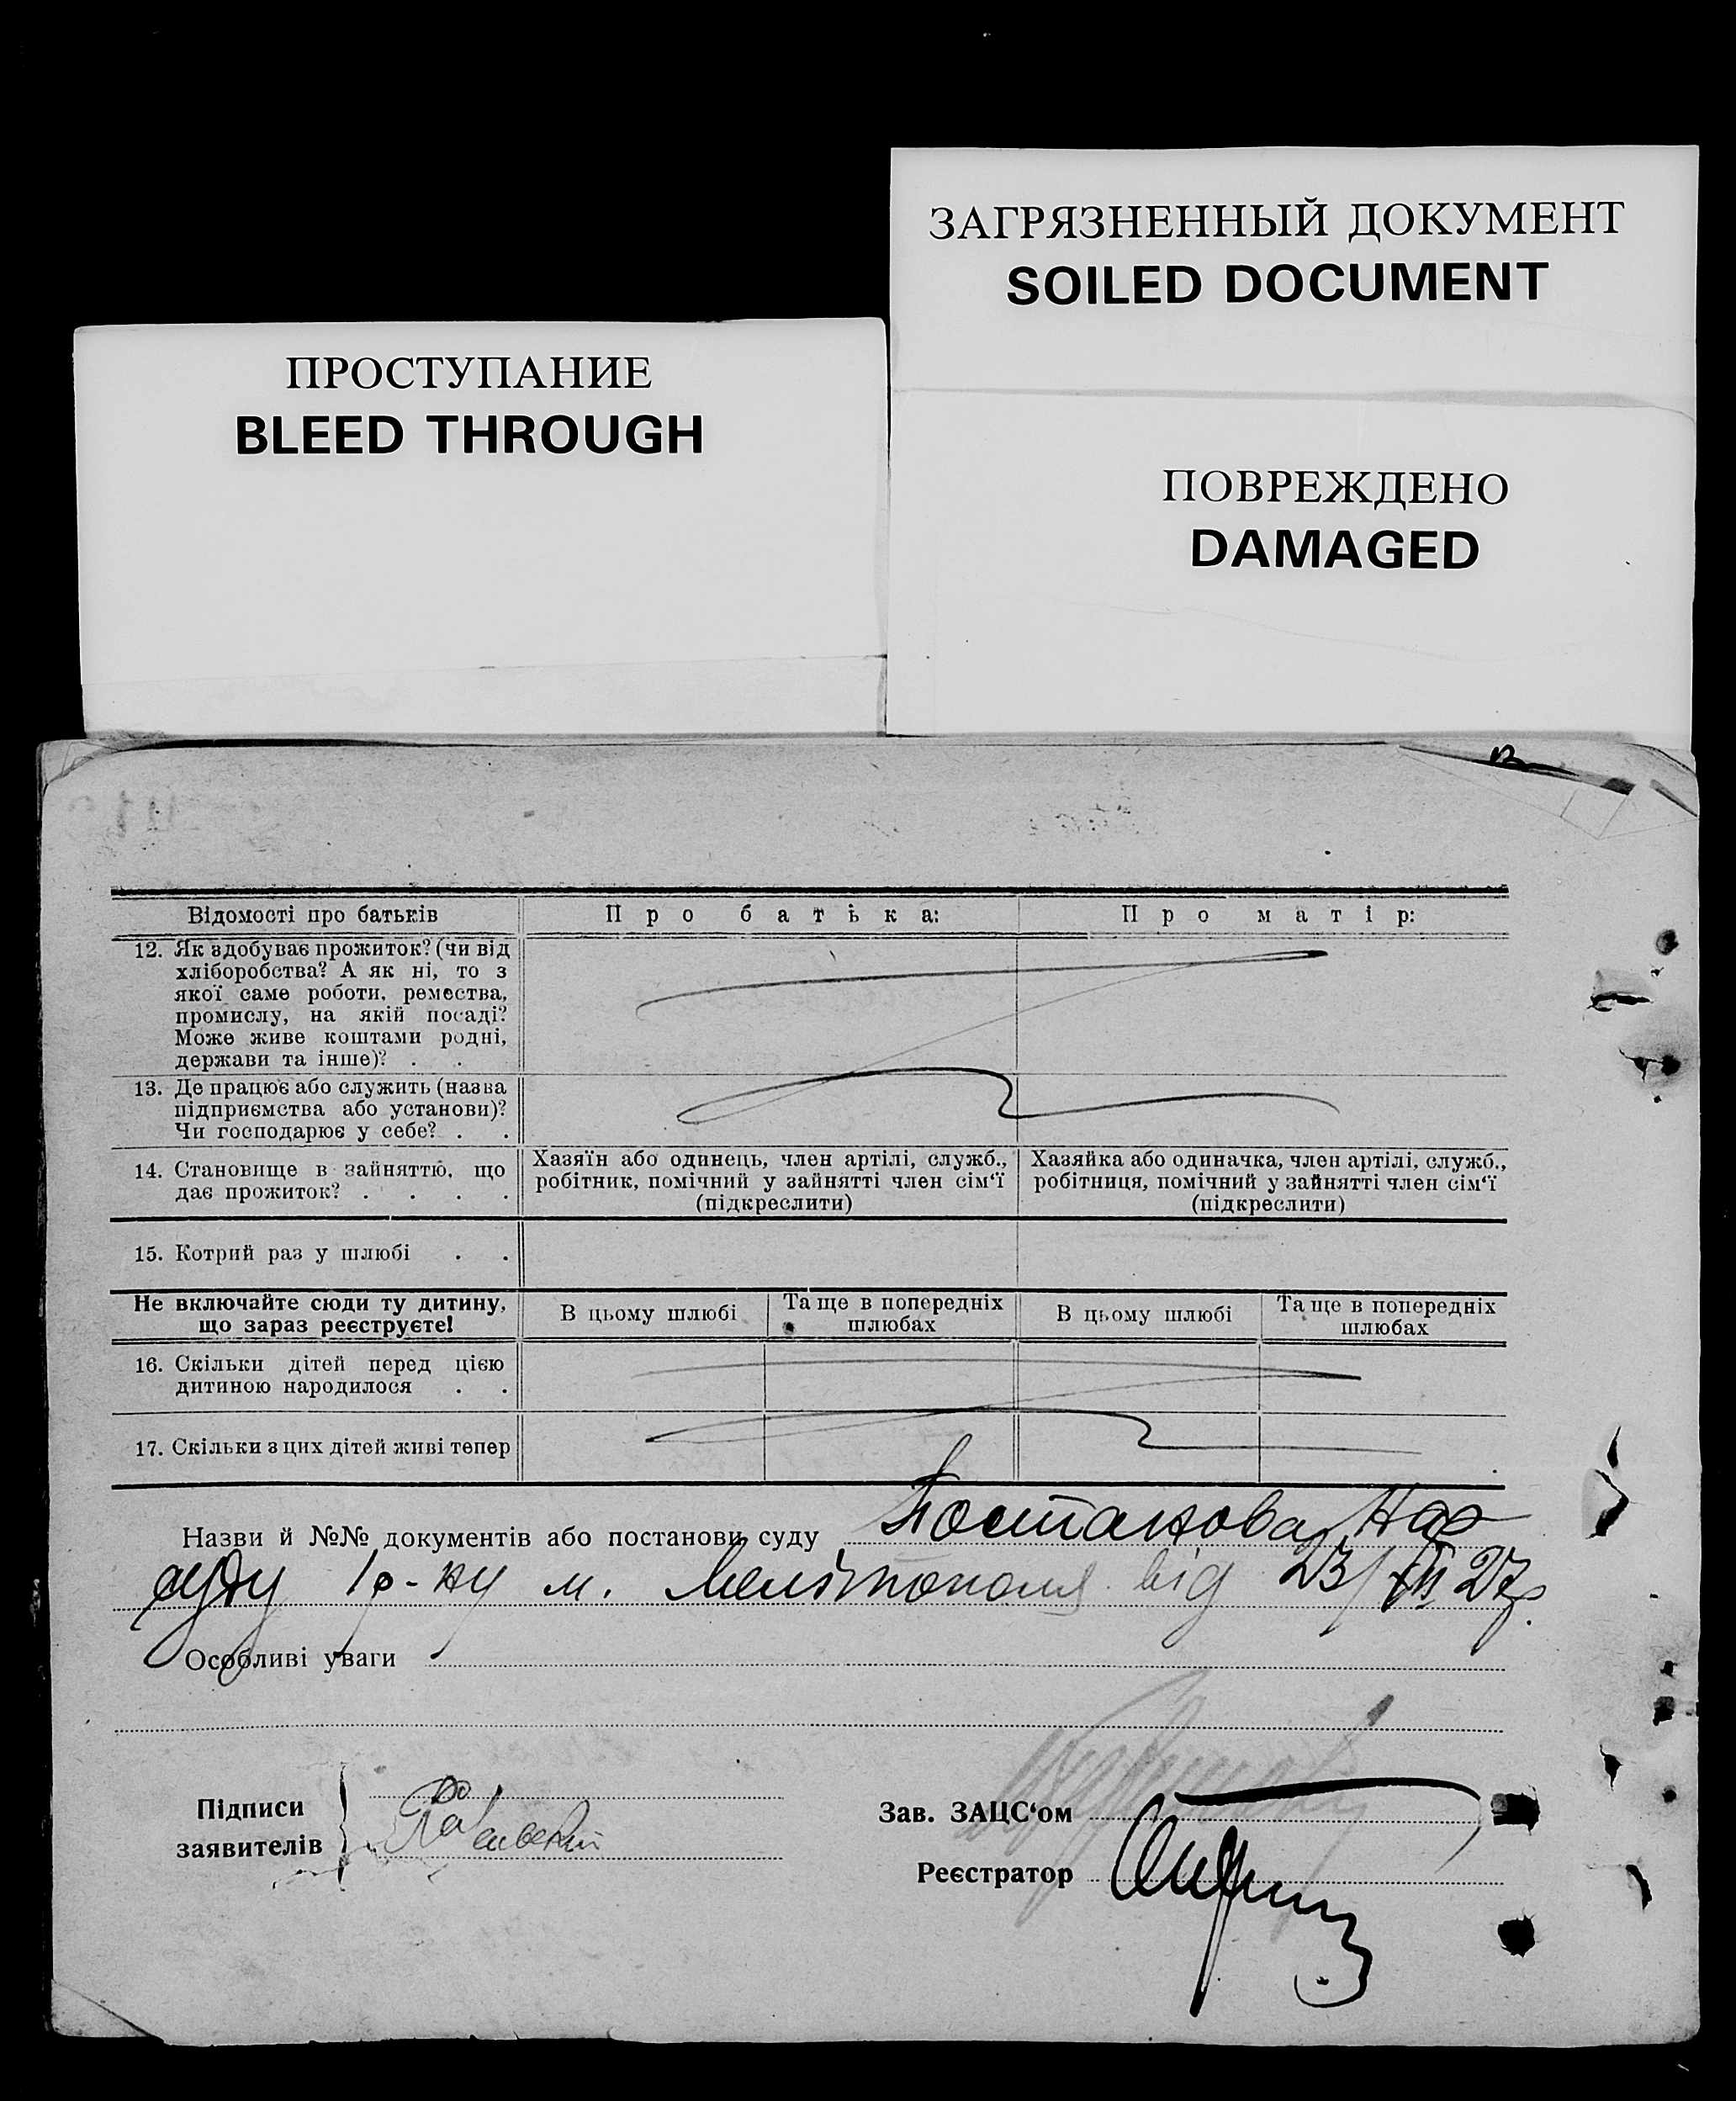 ЗАГРЯЗНЕННЫЙ ДОКУМЕНТ
SOILED DOCUMENT
ПРОСТУПАНИЕ
BLEED THROUGH
ПОВРЕЖДЕНО
DAMAGED
Відомості про батьків
Про батька:
Про матір:
12. Як здобуває прожиток? (чи від
хліборобства? А як ні, то з
якої саме роботи, ремества,
промислу, на якій посаді?
Може живе коштами родні,
держави та інше)? . .
13. Де працює або служить (назва
підприємства або установи)?
Чи господарює у себе? . .
14. Становище в зайняттю, що
дає прожиток? . . . .
Хазяїн або одинець, член артілі, служб.,
робітник, помічний у зайнятті член сім‘ї
(підкреслити)
Хазяйка або одиначка, член артілі, служб.,
робітниця, помічний у зайнятті член сім‘ї
(підкреслити)
15. Котрий раз у шлюбі . .
Не включайте сюди ту дитину,
що зараз реєструєте!
В цьому шлюбі
Та ще в попередніх
шлюбах
В цьому шлюбі
Та ще в попередніх
шлюбах
16. Скільки дітей перед цією
дитиною народилося . .
17. Скільки з цих дітей живі тепер
Назви й №№ документів або постанови суду Постанова Нар
суду 1 р-ну м. Мелітополя від 23/XII 27р.
Особливі уваги
Підписи
заявителів
Зав. ЗАЦС‘ом
Реєстратор